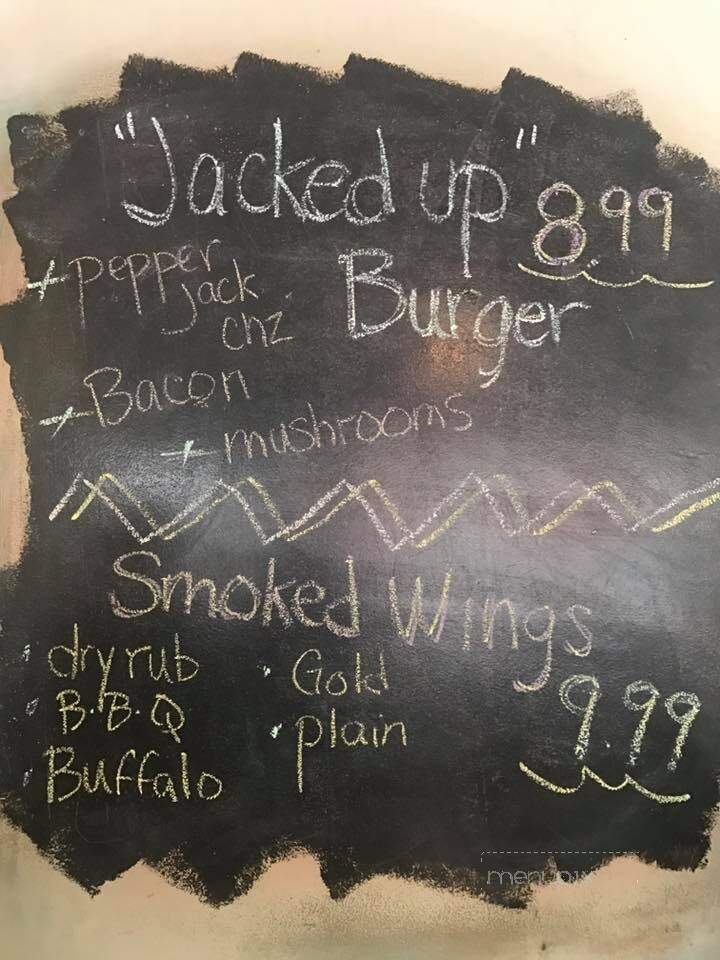 "Jacked up" 8.99
Burger
+ Pepper
Jack
chz
+ Bacon
+ mushrooms
Smoked Wings
9.99
· dry rub
· B.B.Q
· Buffalo
· Gold
· plain
menupix